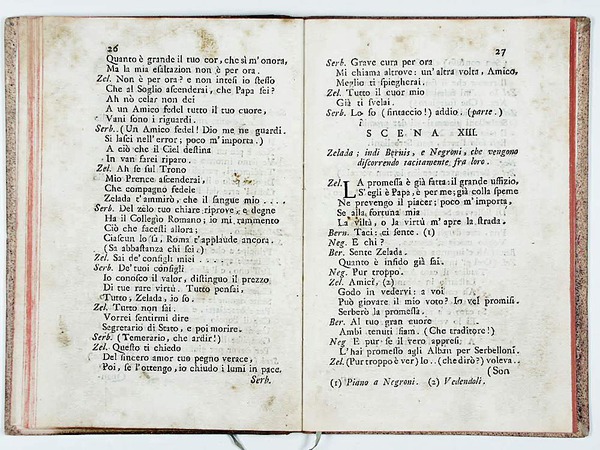 26
Quanto è grande il tuo cor, che sì m' onora,
Ma la mia esaltazion non è per ora.
Zel. Non è per ora? e non intesi io stesso
Che al Soglio ascenderai, che Papa sei?
Ah nò celar non dei
A un Amico fedel tutto il tuo cuore,
Vani sono i riguardi.
Serb. (Un Amico fedel! Dio me ne guardi.
Si lasci nell' error; poco m' importa.)
A ciò che il Ciel destina
In van farei riparo.
Zel. Ah se sul Trono
Mio Prence ascenderai,
Che compagno fedele
Zelada t' ammirò, che il sangue mio ....
Serb. Del zelo tuo chiare riprove, e degne
Ha il Collegio Romano; io mi rammento
Ciò che facesti allora;
Ciascun lo sa, Roma t' applaude ancora.
(Sa abbastanza chi sei.)
Zel. Sai de' consigli miei .....
Serb. De' tuoi consigli
Io conosco il valor, distinguo il prezzo
Di tue rare virtù. Tutto pensai,
Tutto, Zelada, io so.
Zel. Tutto non sai.
Vorrei sentirmi dire
Segretario di Stato, e poi morire.
Serb. (Temerario, che ardir!)
Zel. Questo ti chiedo
Del sincero amor tuo pegno verace,
Poi, se l' ottengo, io chiudo i lumi in pace.
Serb.
27
Serb. Grave cura per ora
Mi chiama altrove: un' altra volta, Amico,
Meglio ti spiegherai.
Zel. Tutto il cuor mio
Già ti svelai.
Serb. Lo so (fintaccio!) addio. (parte.)
SCENA XIII.
Zelada; indi Bernis, e Negroni, che vengono
discorrendo tacitamente fra loro.
Zel. LA promessa è già fatta: il grande uffizio,
S' egli è Papa, è per me; già colla speme
Ne prevengo il piacer; poco m' importa,
Se alla fortuna mia
La viltà, o la virtù m' apre la strada.
Bern. Taci: ci sente. (1)
Neg. E chi?
Ber. Sente Zelada.
Quanto è infido già sai.
Neg. Pur troppo.
Zel. Amici, (2)
Godo in vedervi: a voi
Può giovare il mio voto? Io vel promisi.
Serberò la promessa.
Ber. Al tuo gran cuore
Ambi tenuti siam. (Che traditore!)
Neg E pur se il vero appresi
L' hai promesso agli Alban per Serbelloni.
Zel. (Pur troppo è ver) Io.. (che dirò?) voleva..
(Son
(1) Piano a Negroni. (2) Vedendoli.